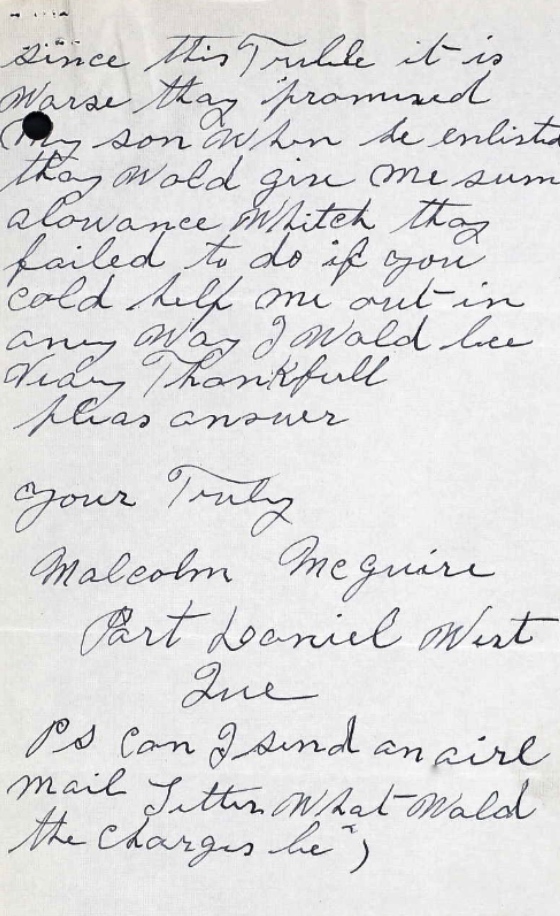 since this Truble it is
Warse thay promised
My son When he enlisted
thay Wold give Me sum
alowance Whitch thay
failed to do if you
cold help me out in
aney Way I Wold bee
Veary Thankfull
pleas answer
your Truly
Malcolm McGuire
Port Daniel West
Que
PS Can I send an airl
Mail Letter What Wold
the Charges be")